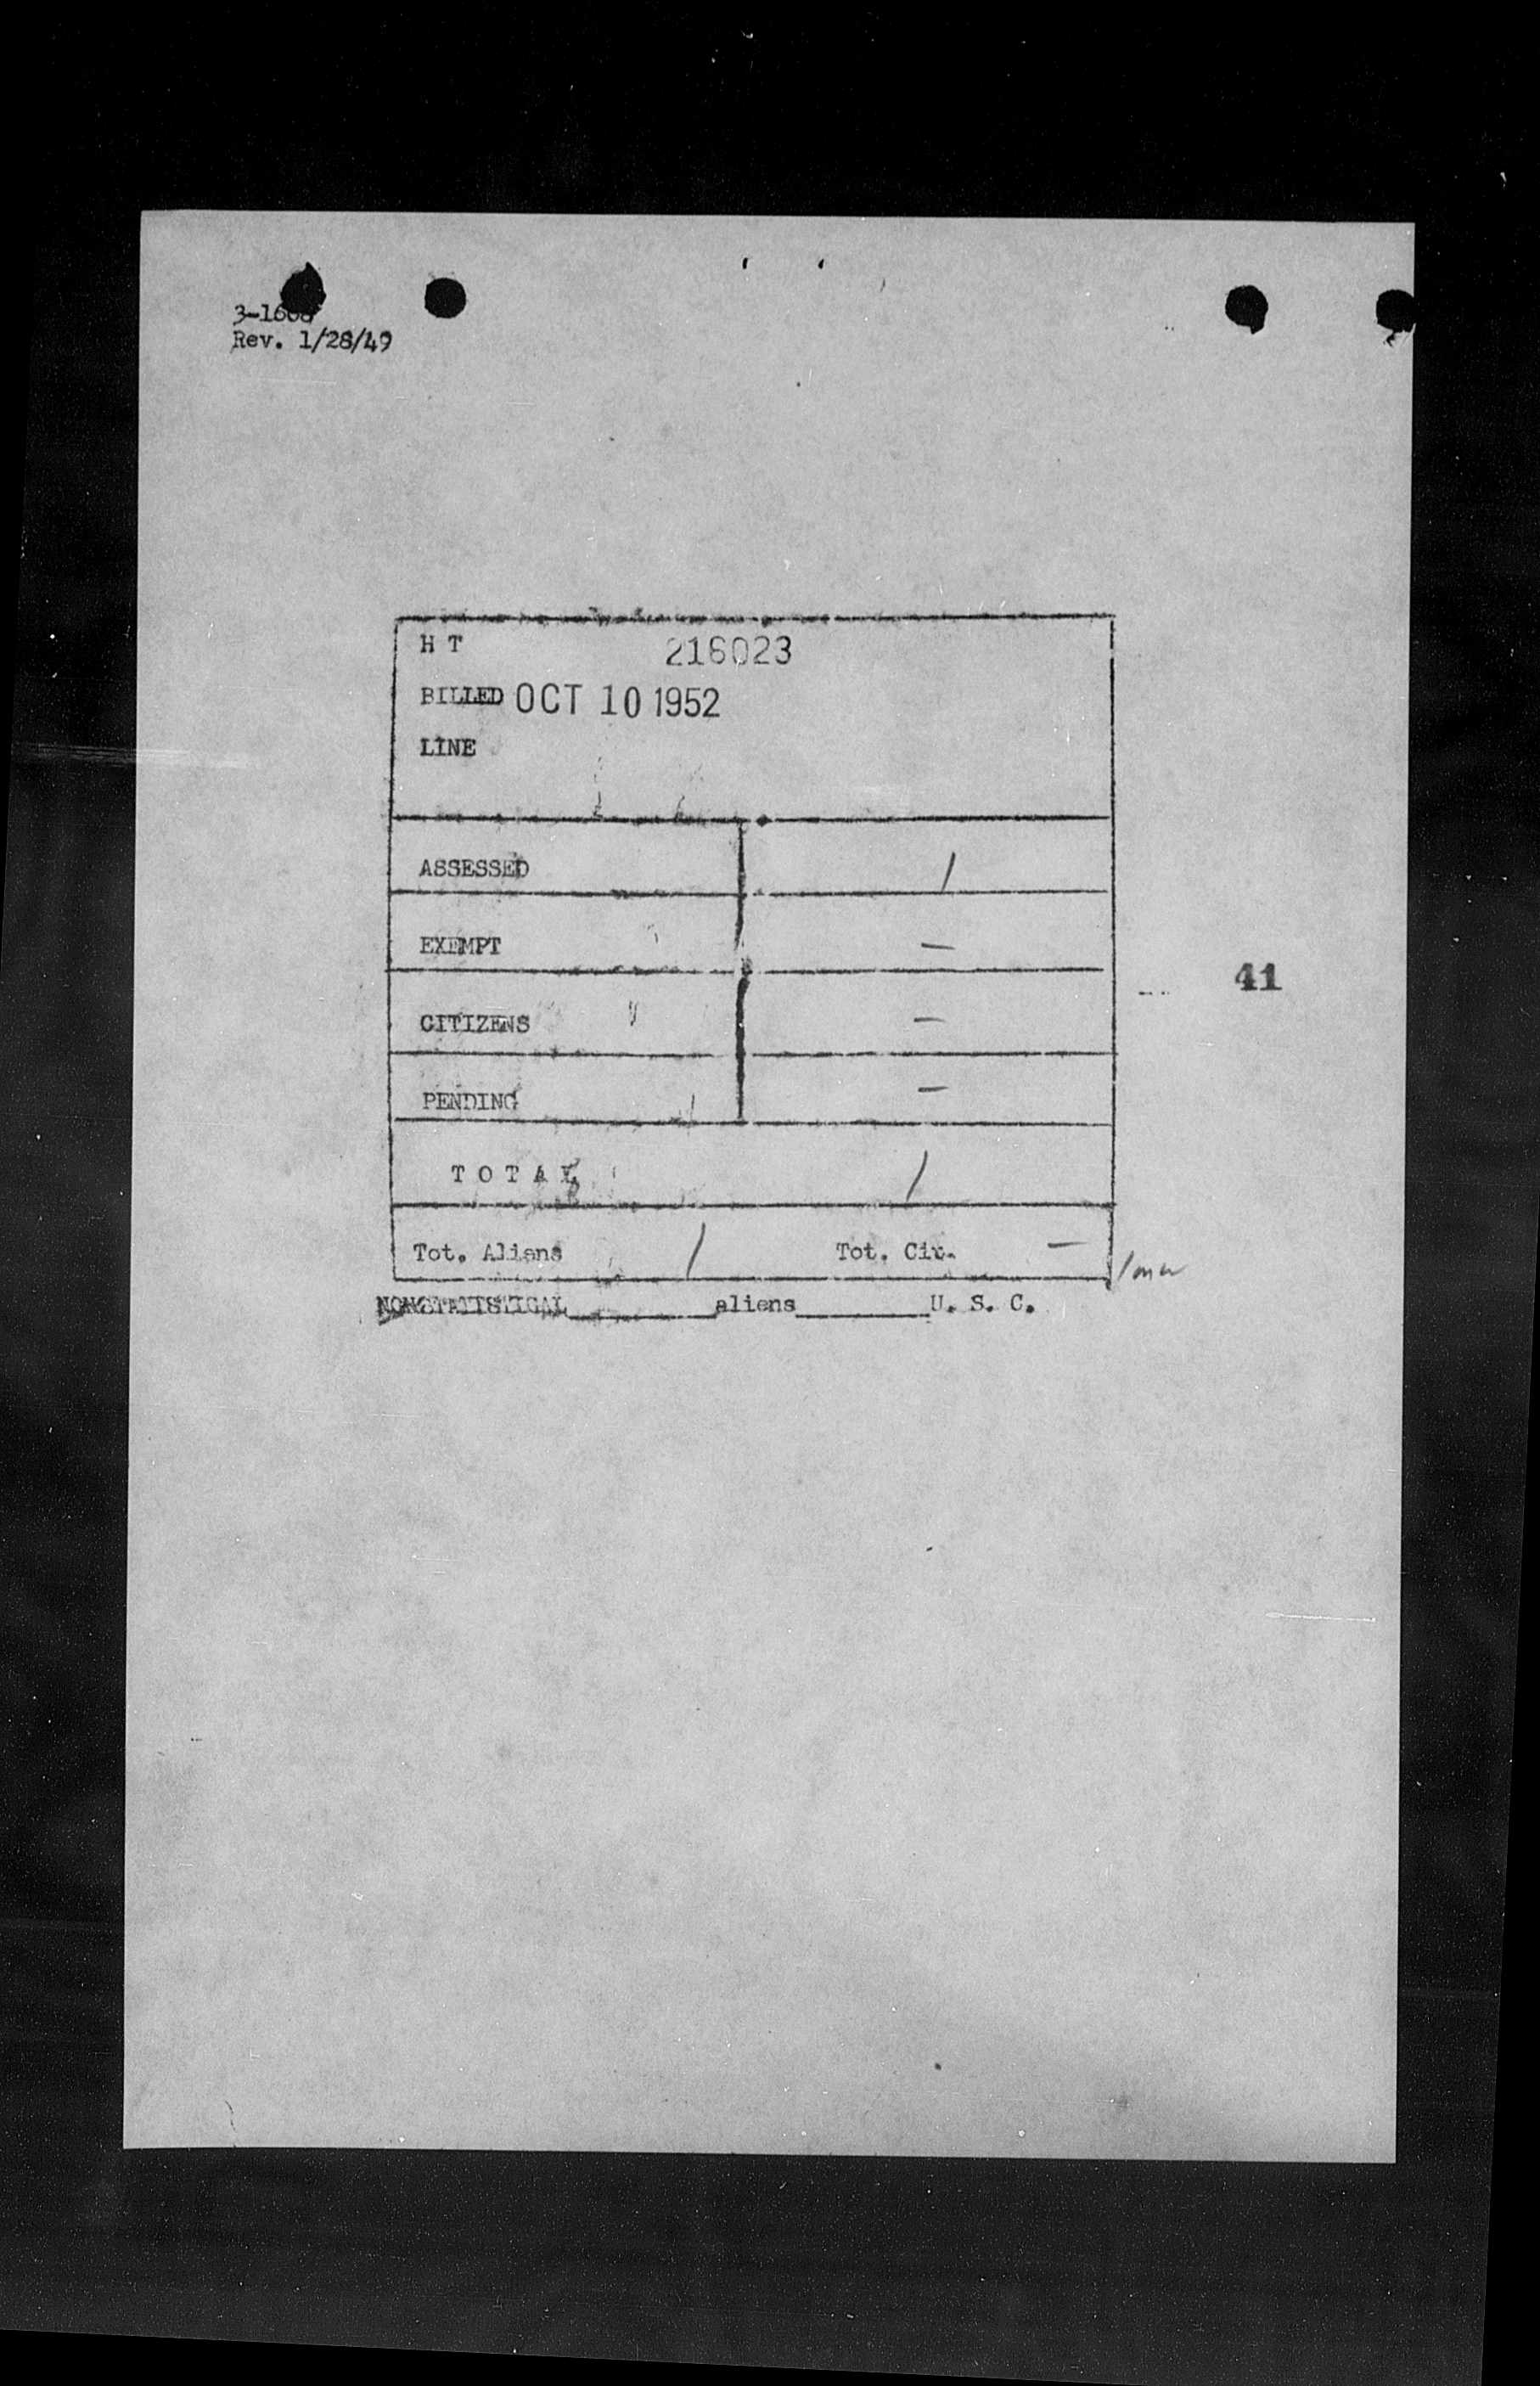 Rev. 1/28/49
H T 216023
BILLED OCT 10 1952
LINE
ASSESSED /
EXEMPT —
CITIZENS —
41
PENDING —
T O T A L /
Tot. Aliens / Tot. Cit. —
NONSTATISTICAL________aliens________U. S. C.